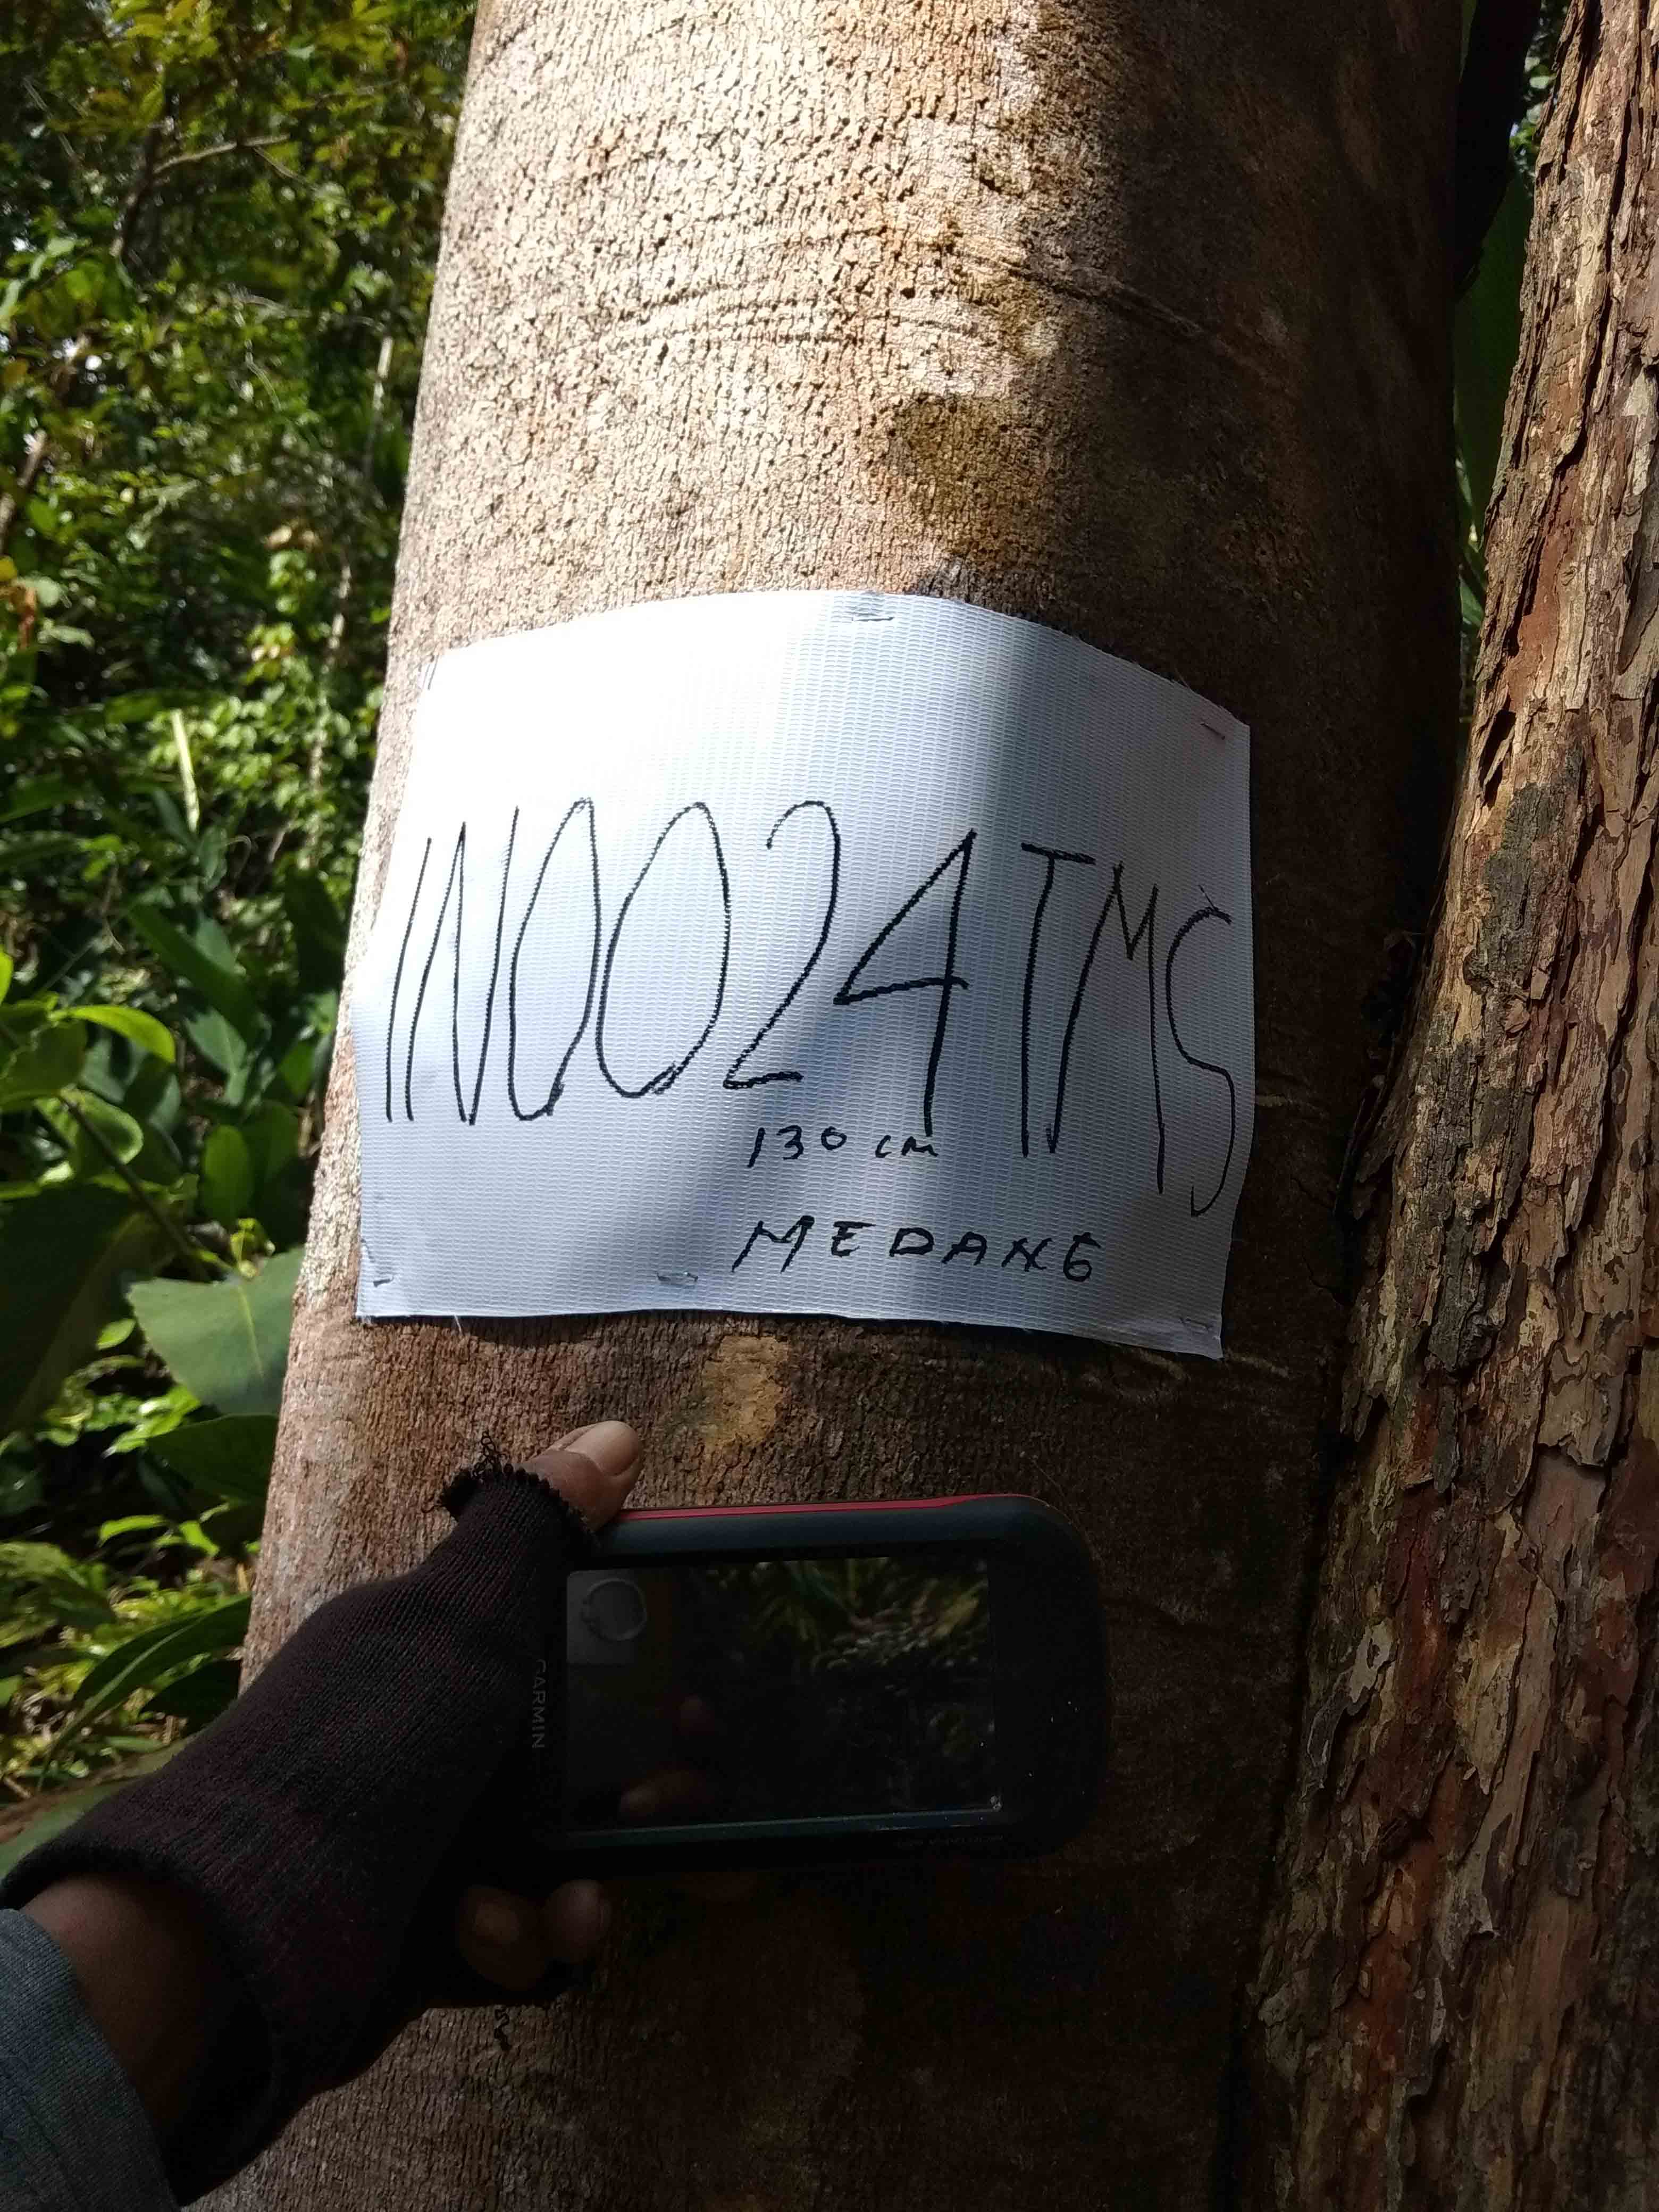 IN0024TMS
130 cm
MEDANG
GARMIN